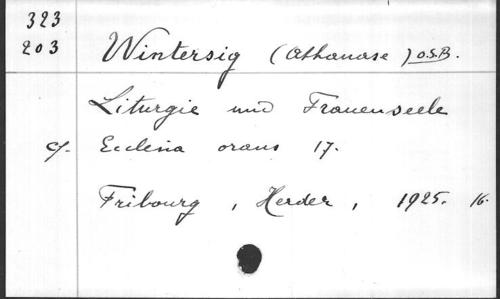 323
203
Wintersig (Athanase) O.S.B.
Liturgie und Frauenseele
cf. Ecclesia orans 17.
Fribourg, Herder, 1925. 16.